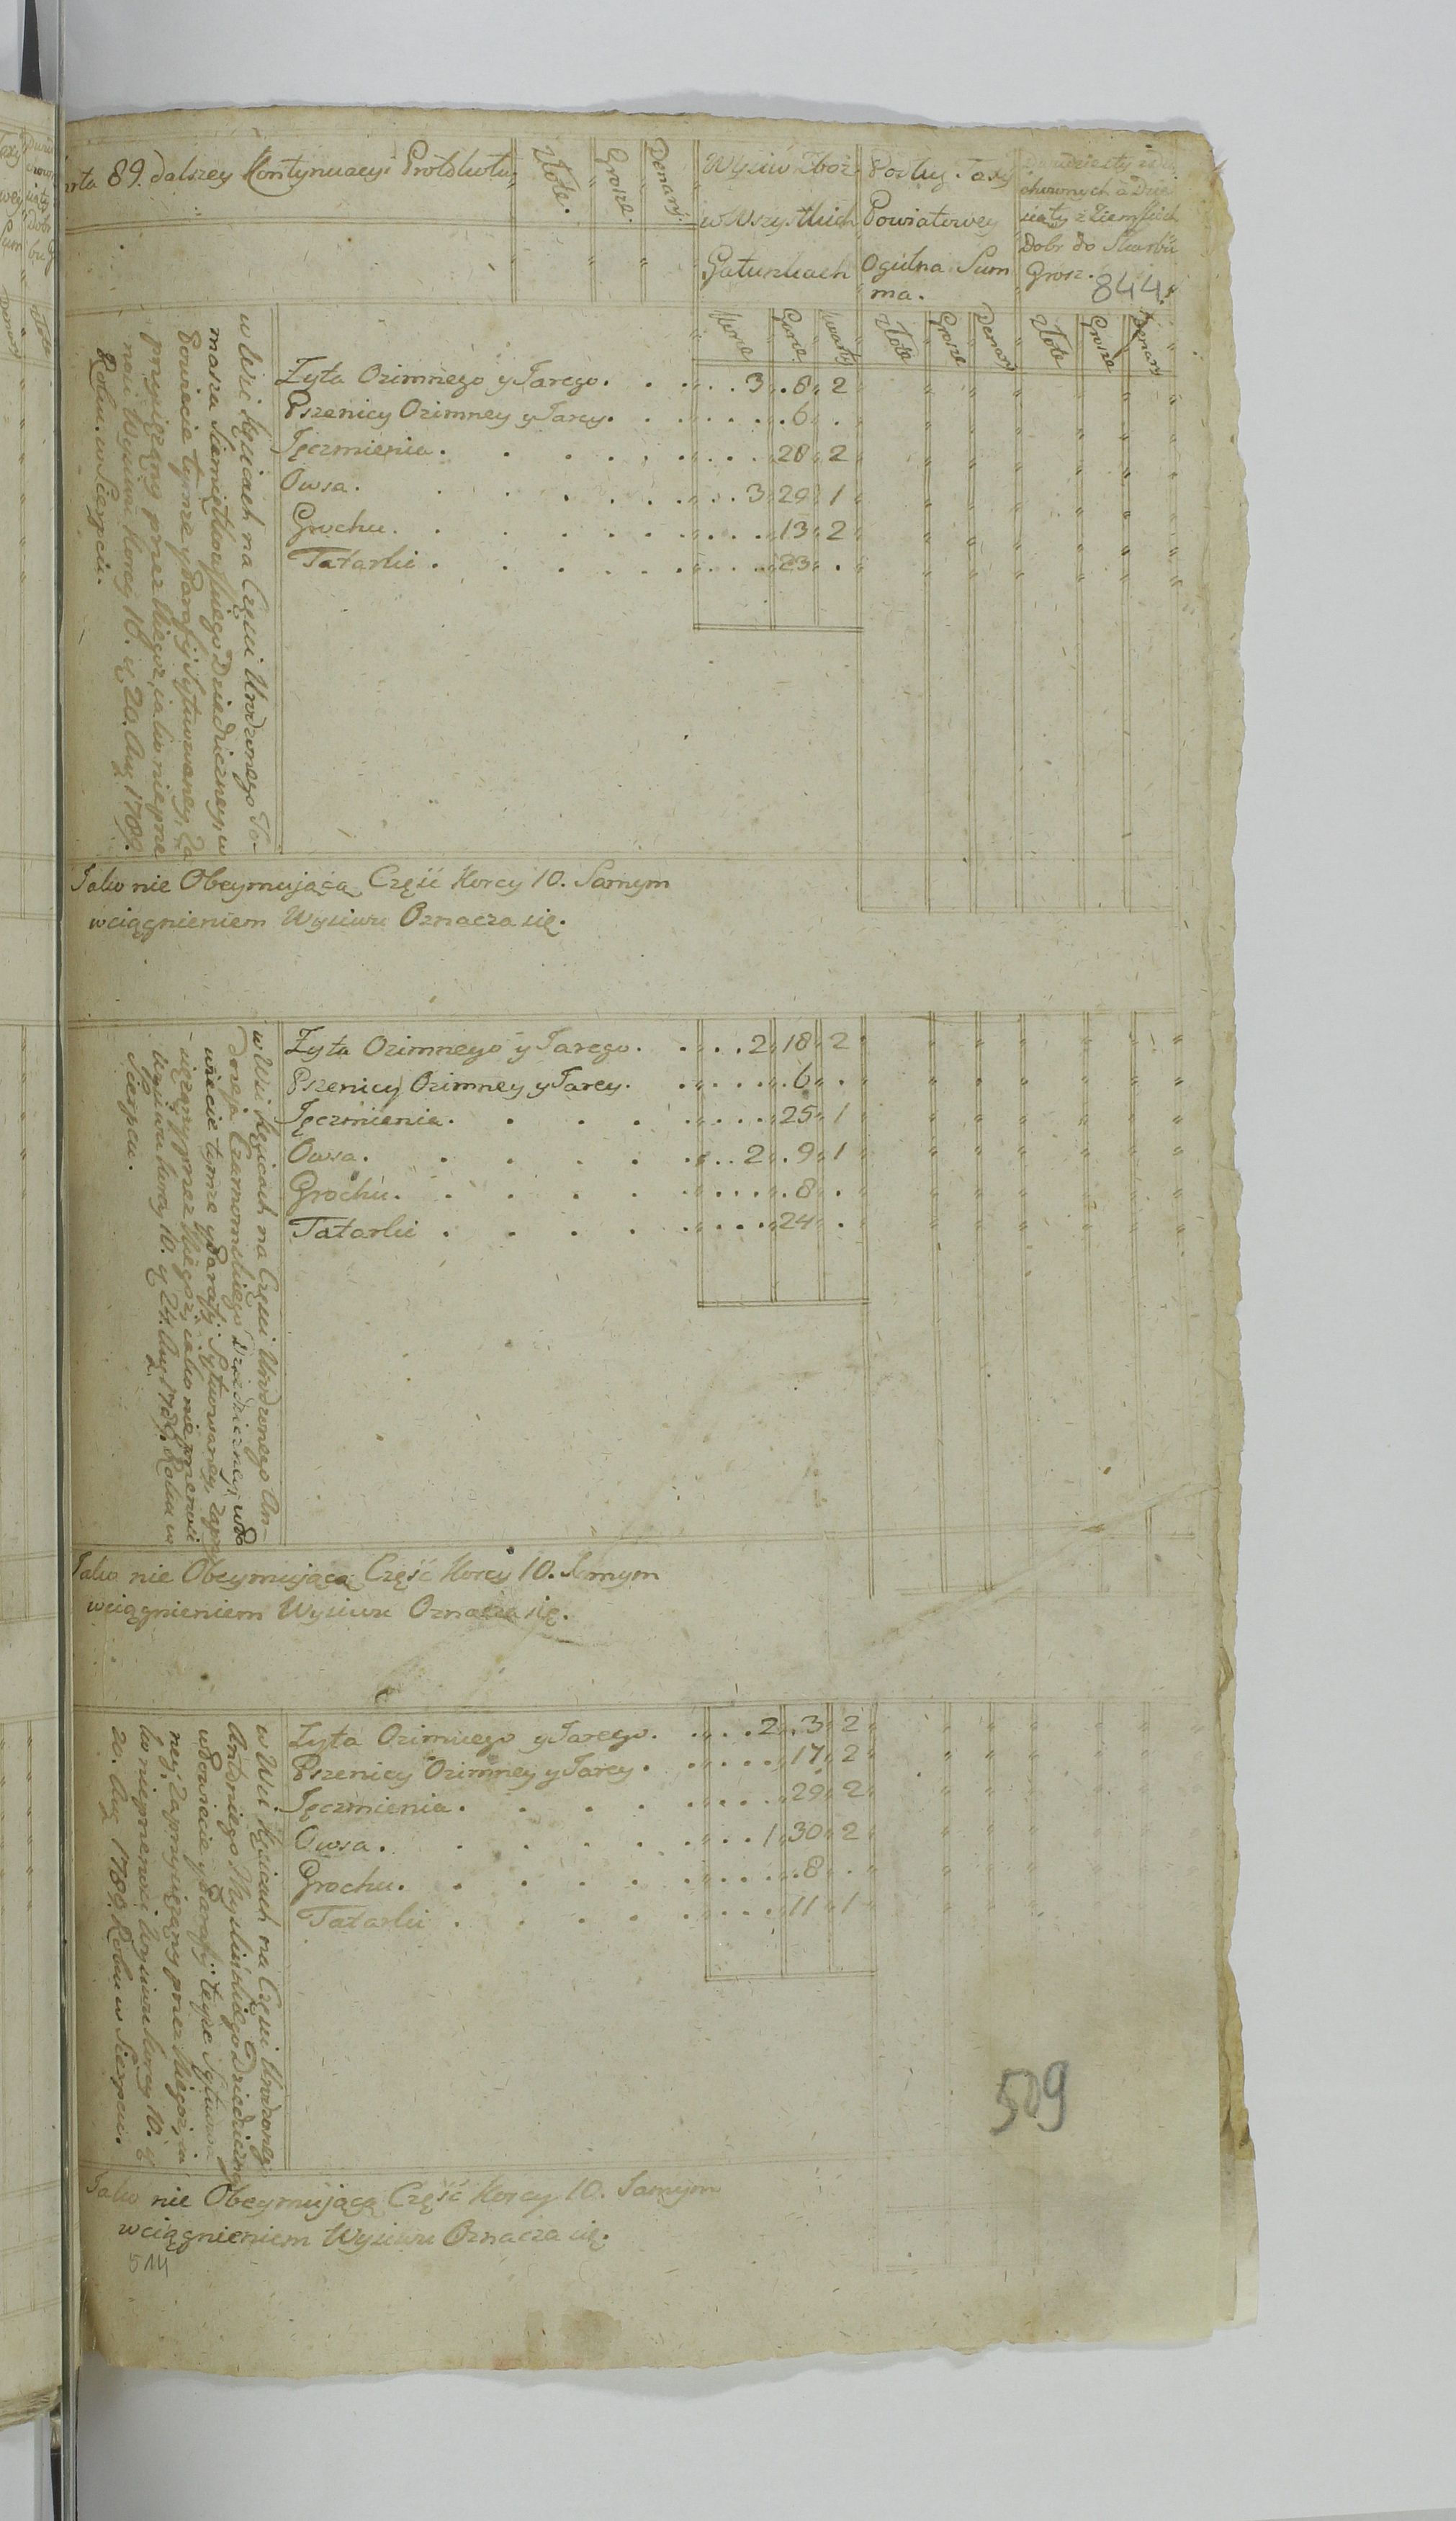 89. dalszey Kontynuacyi Protokułu
Złote. Grosze. Denary.
Wysiw Zboż
w Wszystkich
Gatunkach
Podług Taxy
Powiatowey
Ogulna Sum
ma.
Dobr do Skarbu
Grosz.
844.
Korce Garce Kwarty Złote Grosze Denary Złote Grosze Denary
w Wsi Kęsicach na Częsci Urodzonego To-
masza Siemiątkowskiego Dziedziczney, w
Powiecie tymze y Parafij Sytuowaney, Za
przysięzony przez Niegoż, jako nieprze
nosi Wysiwu Korcy 10. y 20. Aug 1789.
Roku. w Sierpcu.
Zyta Ozimnego y Jarego. 3 8 2
Pszenicy Ozimney y Jarey. 6 .
Jęczmienia. 28 2
Owsa. 3 29 1
Grochu. 13 2
Tatarki. 23 .
Jako nie Obeymująca Część Korcy 10. Samym
wciągnieniem Wysiwu Oznacza się.
w Wsi Kęsicach na Częsci Urodzonego An-
drzeja Czarnomskiego Dziedziczney, w Po
wiecie tymze y Parafij Sytuowaney, Zaprzy
sięzony przez Niegoż, jako nieprzenosi
Wysiwu Korcy 10. y 24. Aug 1789. Roku w
Sierpcu.
Zyta Ozimnego y Jarego. 2 18 2
Pszenicy Ozimney y Jarey. 6 .
Jęczmienia. 25 1
Owsa. 2 9 1
Grochu. 8 .
Tatarki. 24 .
Jako nie Obeymująca Część Korcy 10. Samym
wciągnieniem Wysiwu Oznacza się.
w Wsi Kęsicach na Częsci Urodzonego
Antoniego Myslińskiego Dziedziczney
w Powiecie y Parafij teyze Sytuowa
ney, Zaprzysięzony przez Niegoż, ja
ko nieprzenosi Wysiwu Korcy 10. y
20. Aug 1789. Roku w Sierpcu.
Zyta Ozimnego y Jarego. 2 3 2
Pszenicy Ozimney y Jarey. 17 2
Jęczmienia. 29 2
Owsa. 1 30 2
Grochu. 8 .
Tatarki. 11 1
509
Jako nie Obeymująca Część Korcy 10. Samym
wciągnieniem Wysiwu Oznacza się.
514